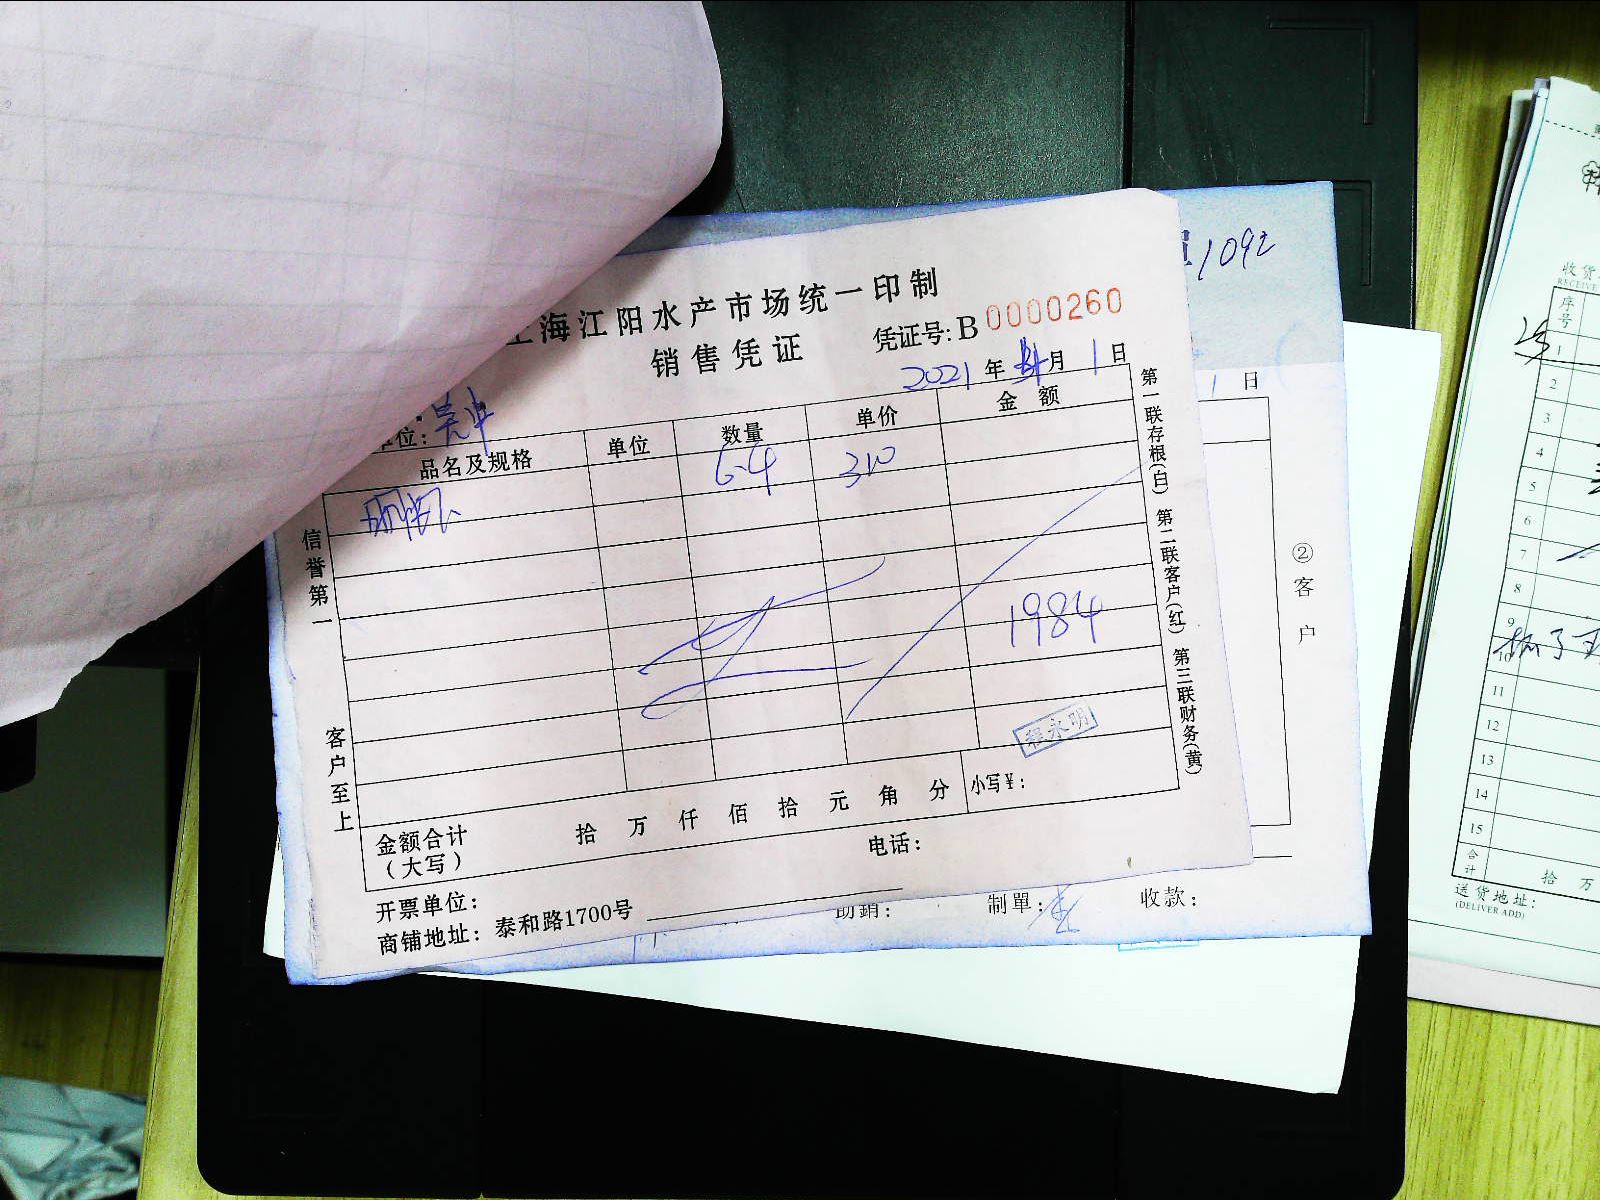 上海江阳水产市场统一印制
销售凭证
凭证号: B 0000260
2021 年 月 1 日
位:
品名及规格 单位 数量 单价 金额
6.4 310
1984
信誉第一
客户至上
程永明
金额合计
(大写)
拾 万 仟 佰 拾 元 角 分
小写¥:
电话:
开票单位:
商铺地址: 泰和路1700号
第一联存根(白) 第二联客户(红) 第三联财务(黄)
1092
1 日
②客户
制單:
收款:
收货
RECEIVE
序号
1
2
3
4
5
6
7
8
9
10
11
12
13
14
15
合计
拾 万
送货地址:
(DELIVER ADD)